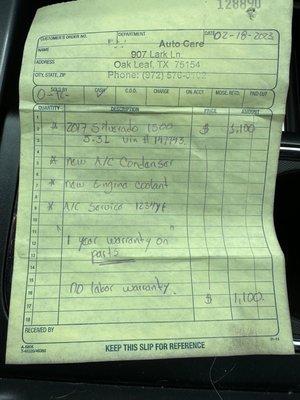 128890
CUSTOMER'S ORDER NO.
DEPARTMENT
DATE 02-18-2023
NAME
Auto Care
907 Lark Ln.
ADDRESS
Oak Leaf, TX 75154
CITY, STATE, ZIP
Phone: (972) 576-0102
SOLD BY CASH C.O.D. CHARGE ON ACCT. MDSE. RETD. PAID OUT
QUANTITY DESCRIPTION PRICE AMOUNT
* 2017 Silverado 1500 $ 1,100
5.3L Vin #
* New A/C Condenser
* New Engine Coolant
* A/C Service 1234yf
1 Year warranty on
parts
NO labor warranty.
$ 1,100.
RECEIVED BY
KEEP THIS SLIP FOR REFERENCE